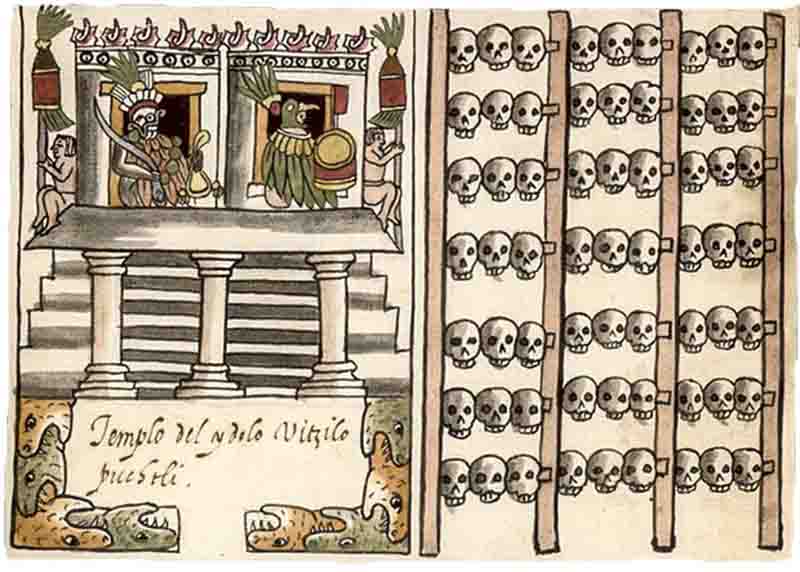 Templo del ydolo Vitzilo
puchtli.